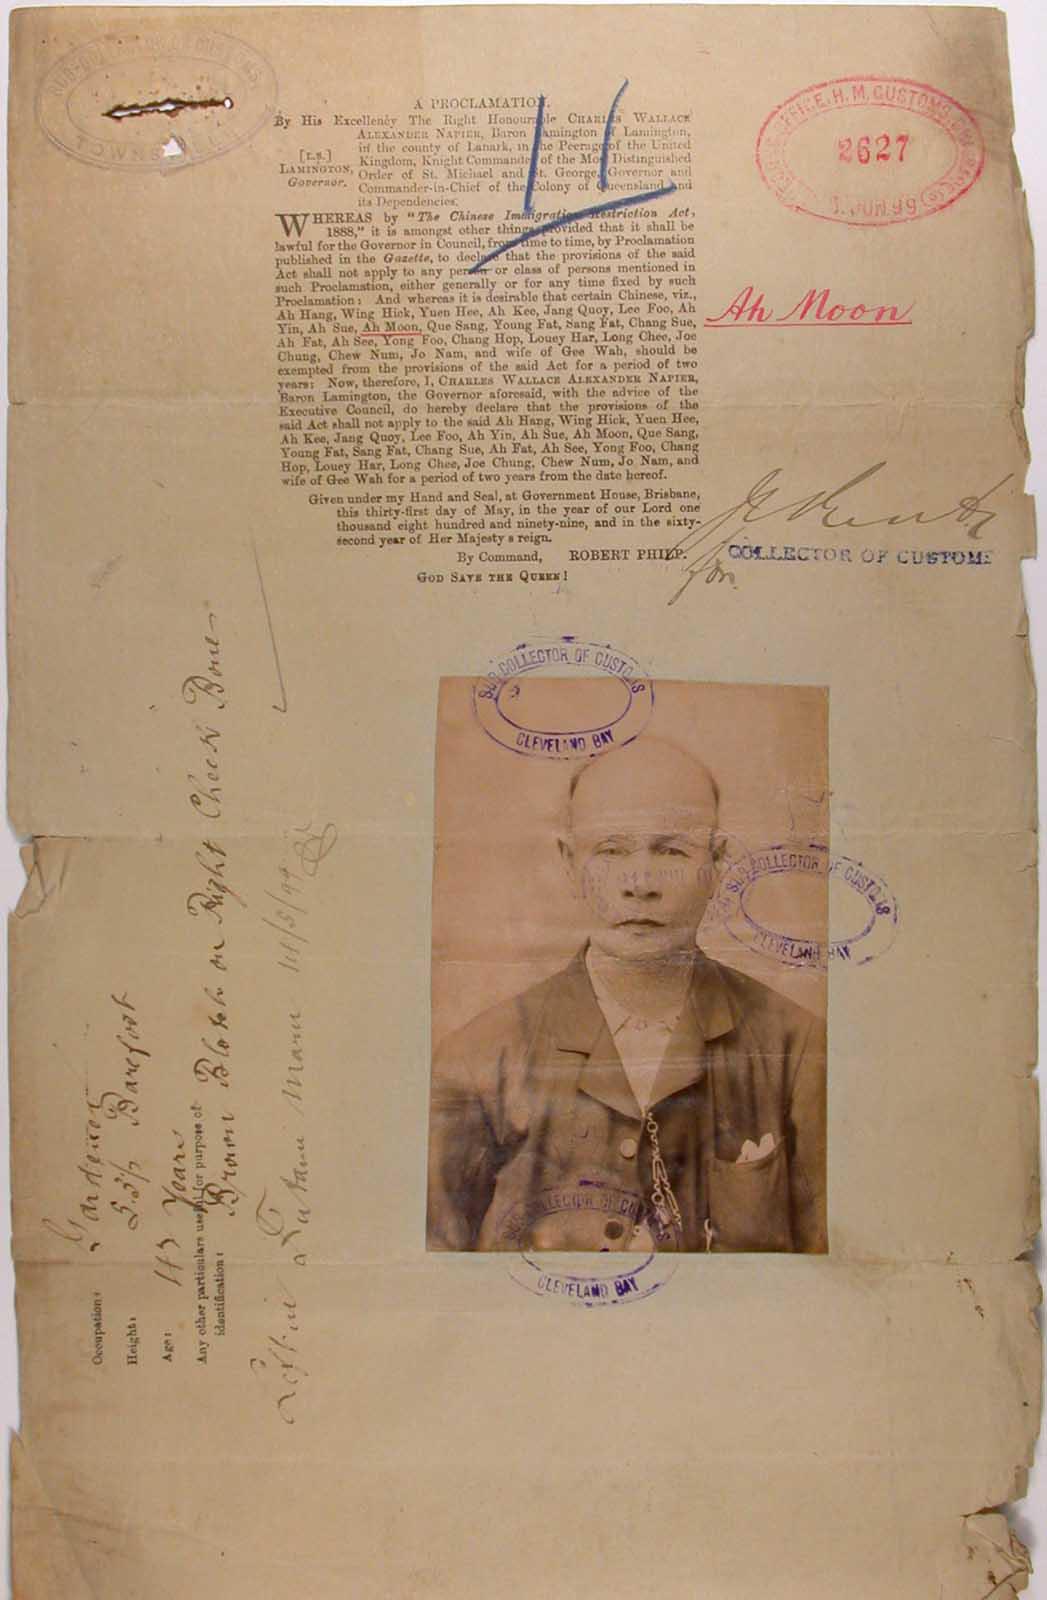 SUB-COLLECTOR OF CUSTOMS,
TOWNSVILLE
A PROCLAMATION.
By His Excellency The Right Honourable CHARLES WALLACE
ALEXANDER NAPIER, Baron Lamington of Lamington,
in the county of Lanark, in the Peerage of the United
Kingdom, Knight Commander of the Most Distinguished
Order of St. Michael and St. George, Governor and
Commander-in-Chief of the Colony of Queensland and
its Dependencies.
[L.S.]
LAMINGTON,
Governor.
WHEREAS by "The Chinese Immigration Restriction Act,
1888," it is amongst other things provided that it shall be
lawful for the Governor in Council, from time to time, by Proclamation
published in the Gazette, to declare that the provisions of the said
Act shall not apply to any person or class of persons mentioned in
such Proclamation, either generally or for any time fixed by such
Proclamation: And whereas it is desirable that certain Chinese, viz.,
Ah Hang, Wing Hick, Yuen Hee, Ah Kee, Jang Quoy, Lee Foo, Ah
Yin, Ah Sue, Ah Moon, Que Sang, Young Fat, Sang Fat, Chang Sue,
Ah Fat, Ah See, Yong Foo, Chang Hop, Louey Har, Long Chee, Joe
Chung, Chew Num, Jo Nam, and wife of Gee Wah, should be
exempted from the provisions of the said Act for a period of two
years: Now, therefore, I, CHARLES WALLACE ALEXANDER NAPIER,
Baron Lamington, the Governor aforesaid, with the advice of the
Executive Council, do hereby declare that the provisions of the
said Act shall not apply to the said Ah Hang, Wing Hick, Yuen Hee,
Ah Kee, Jang Quoy, Lee Foo, Ah Yin, Ah Sue, Ah Moon, Que Sang,
Young Fat, Sang Fat, Chang Sue, Ah Fat, Ah See, Yong Foo, Chang
Hop, Louey Har, Long Chee, Joe Chung, Chew Num, Jo Nam, and
wife of Gee Wah for a period of two years from the date hereof.
Given under my Hand and Seal, at Government House, Brisbane,
this thirty-first day of May, in the year of our Lord one
thousand eight hundred and ninety-nine, and in the sixty-
second year of Her Majesty's reign.
By Command, ROBERT PHILP.
GOD SAVE THE QUEEN!
OFFICE, H. M. CUSTOMS,
2627
JUN. 99
Ah Moon
for
COLLECTOR OF CUSTOMS
SUB COLLECTOR OF CUSTOMS
CLEVELAND BAY
SUB COLLECTOR OF CUSTOMS
CLEVELAND BAY
SUB COLLECTOR OF CUSTOMS
CLEVELAND BAY
Occupation: Gardener
Height: Barefoot
Age: 43 Years
Any other particulars useful for purpose of
identification: Brown Blotch on Right Cheek Bone